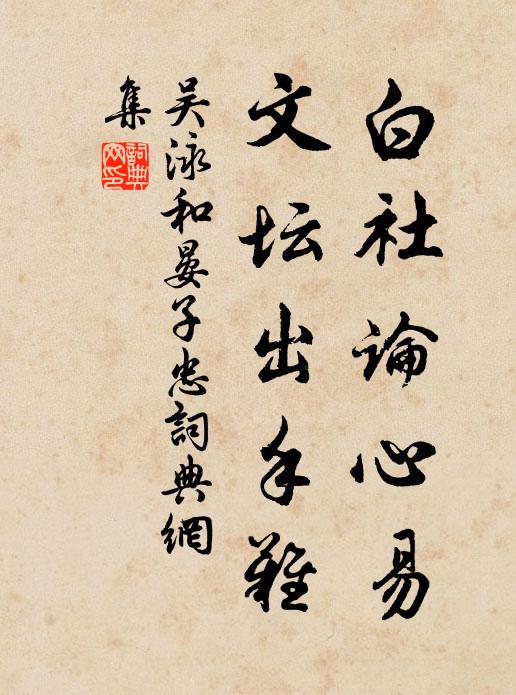 白社論心易
文坛出手難
吴泳和晏子忠詞典網
集
詞典
网印